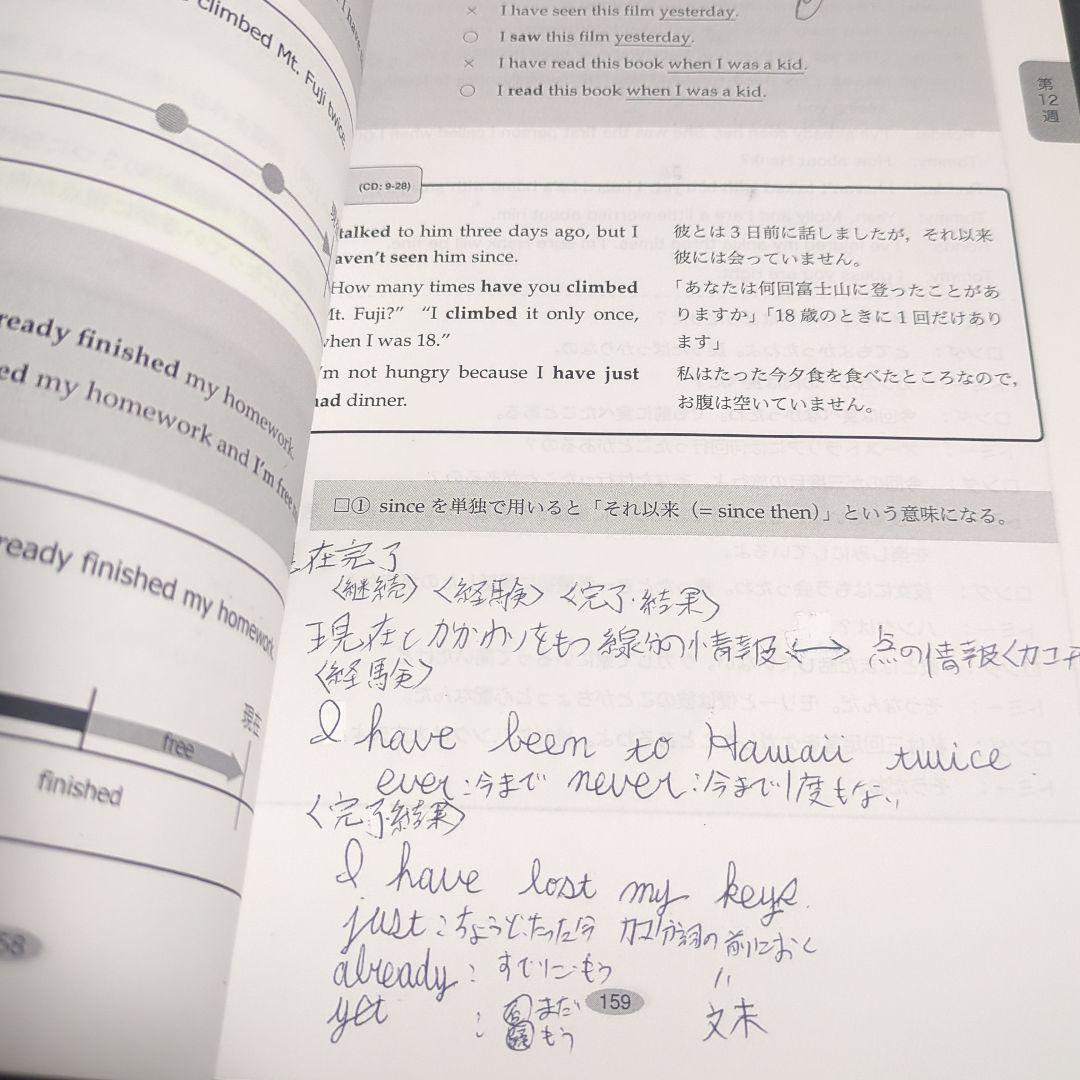 climbed Mt. Fuji twice.
ready finished my homework.
ed my homework and I'm free
ready finished my homework.
現在
free
finished
58
× I have seen this film yesterday.
○ I saw this film yesterday.
× I have read this book when I was a kid.
○ I read this book when I was a kid.
第12週
(CD: 9-28)
talked to him three days ago, but I
aven't seen him since.
彼とは3日前に話しましたが，それ以来
彼には会っていません。
How many times have you climbed
Mt. Fuji?” “I climbed it only once,
when I was 18.”
「あなたは何回富士山に登ったことがあ
りますか」「18歳のときに1回だけあり
ます」
'm not hungry because I have just
had dinner.
私はたった今夕食を食べたところなので，
お腹は空いていません。
□① since を単独で用いると「それ以来（= since then）」という意味になる。
在完了
〈継続〉〈経験〉〈完了・結果〉
現在とかかわりをもつ線分の情報 ⟷ 点の情報〈カコ
〈経験〉
I have been to Hawaii twice.
ever：今まで never：今まで1度もない
〈完了・結果〉
I have lost my keys.
just：ちょうど・たった今 カコ分詞の前におく
already：すでに・もう 〃
yet：否 まだ 文末
疑 もう
159